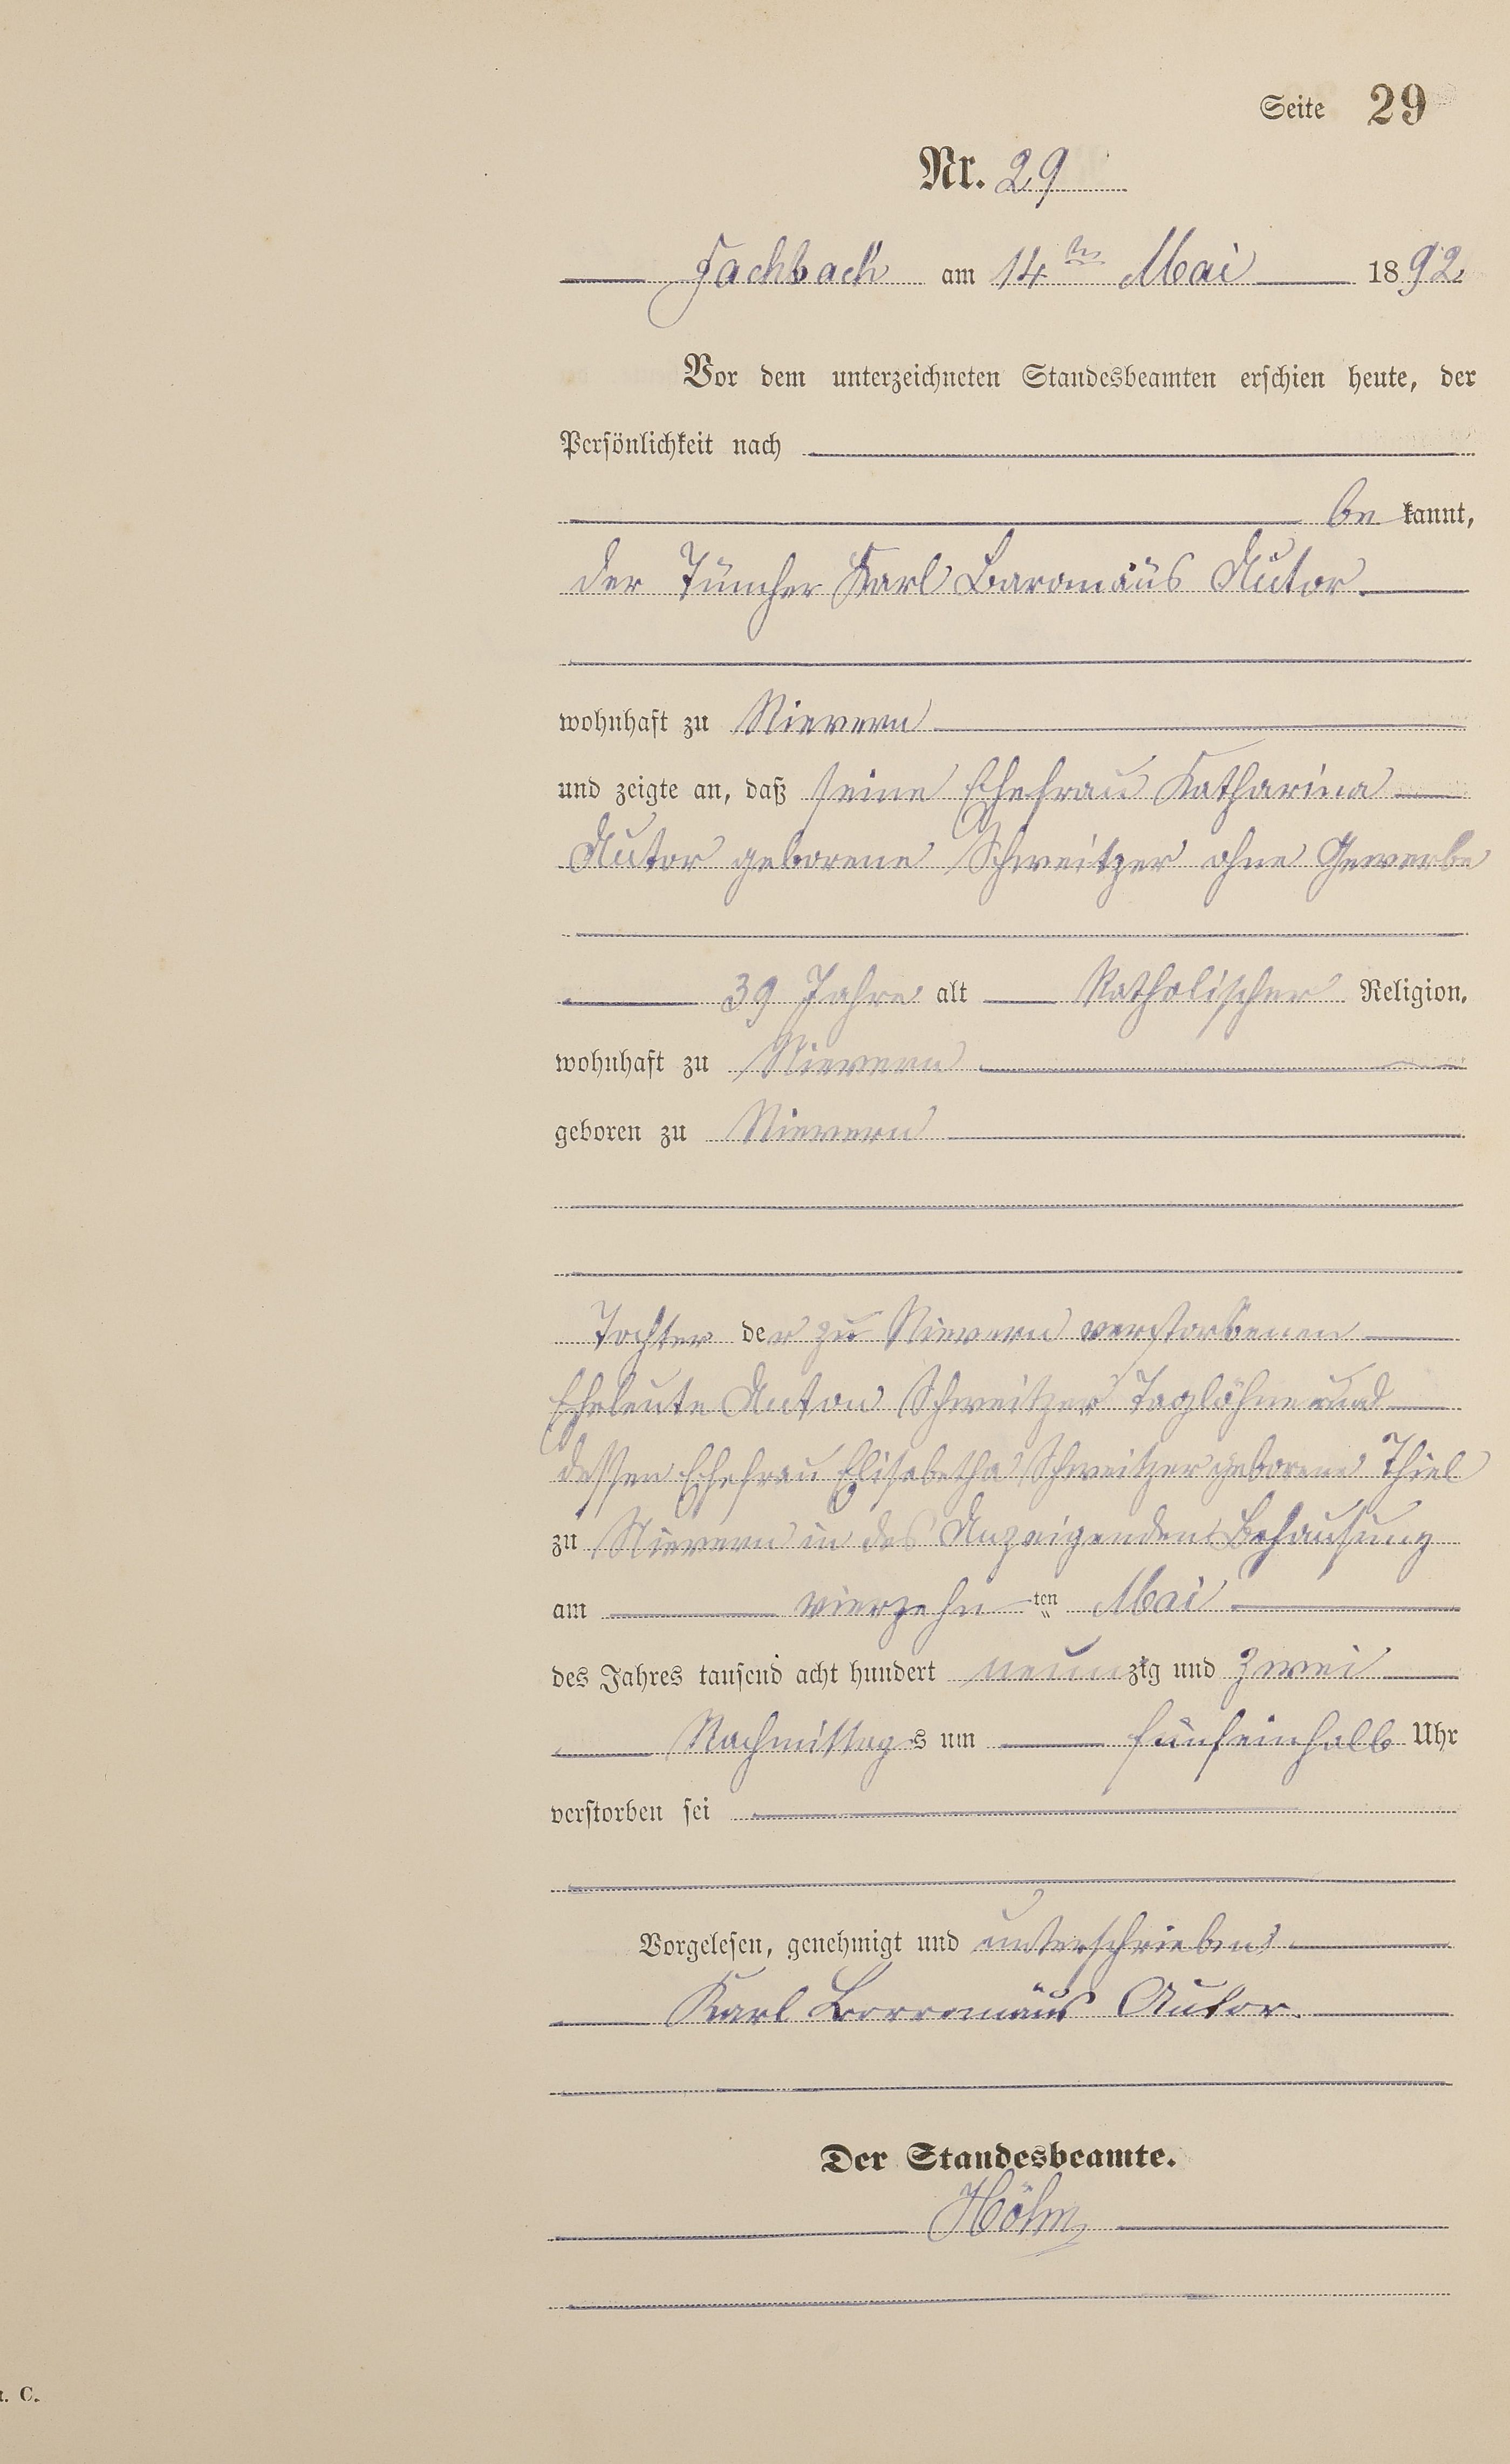 Seite 29
Nr. 29
Fachbach am 14ten Mai 1892
Vor dem unterzeichneten Standesbeamten erschien heute, der
Persönlichkeit nach
be kannt,
der Tüncher Karl Baromäus Autor.
wohnhaft zu Nievern
und zeigte an, daß seine Ehefrau Katharina
Autor geborene Schweitzer ohne Gewerbe
39 Jahre alt Katholischer Religion,
wohnhaft zu Nievern
geboren zu Nievern
Tochter der zu Nievern verstorbenen
Eheleute Anton Schweitzer Taglöhner und
dessen Ehefrau Elisabetha Schweitzer geborene Thiel
zu Nievern in des Anzeigenden Behausung
am vierzehn ten Mai
des Jahres tausend acht hundert neunzig und zwei
Nachmittags um fünfeinhalb Uhr
verstorben sei
Vorgelesen, genehmigt und unterschrieben
Karl Borromäus Autor.
Der Standesbeamte.
C.